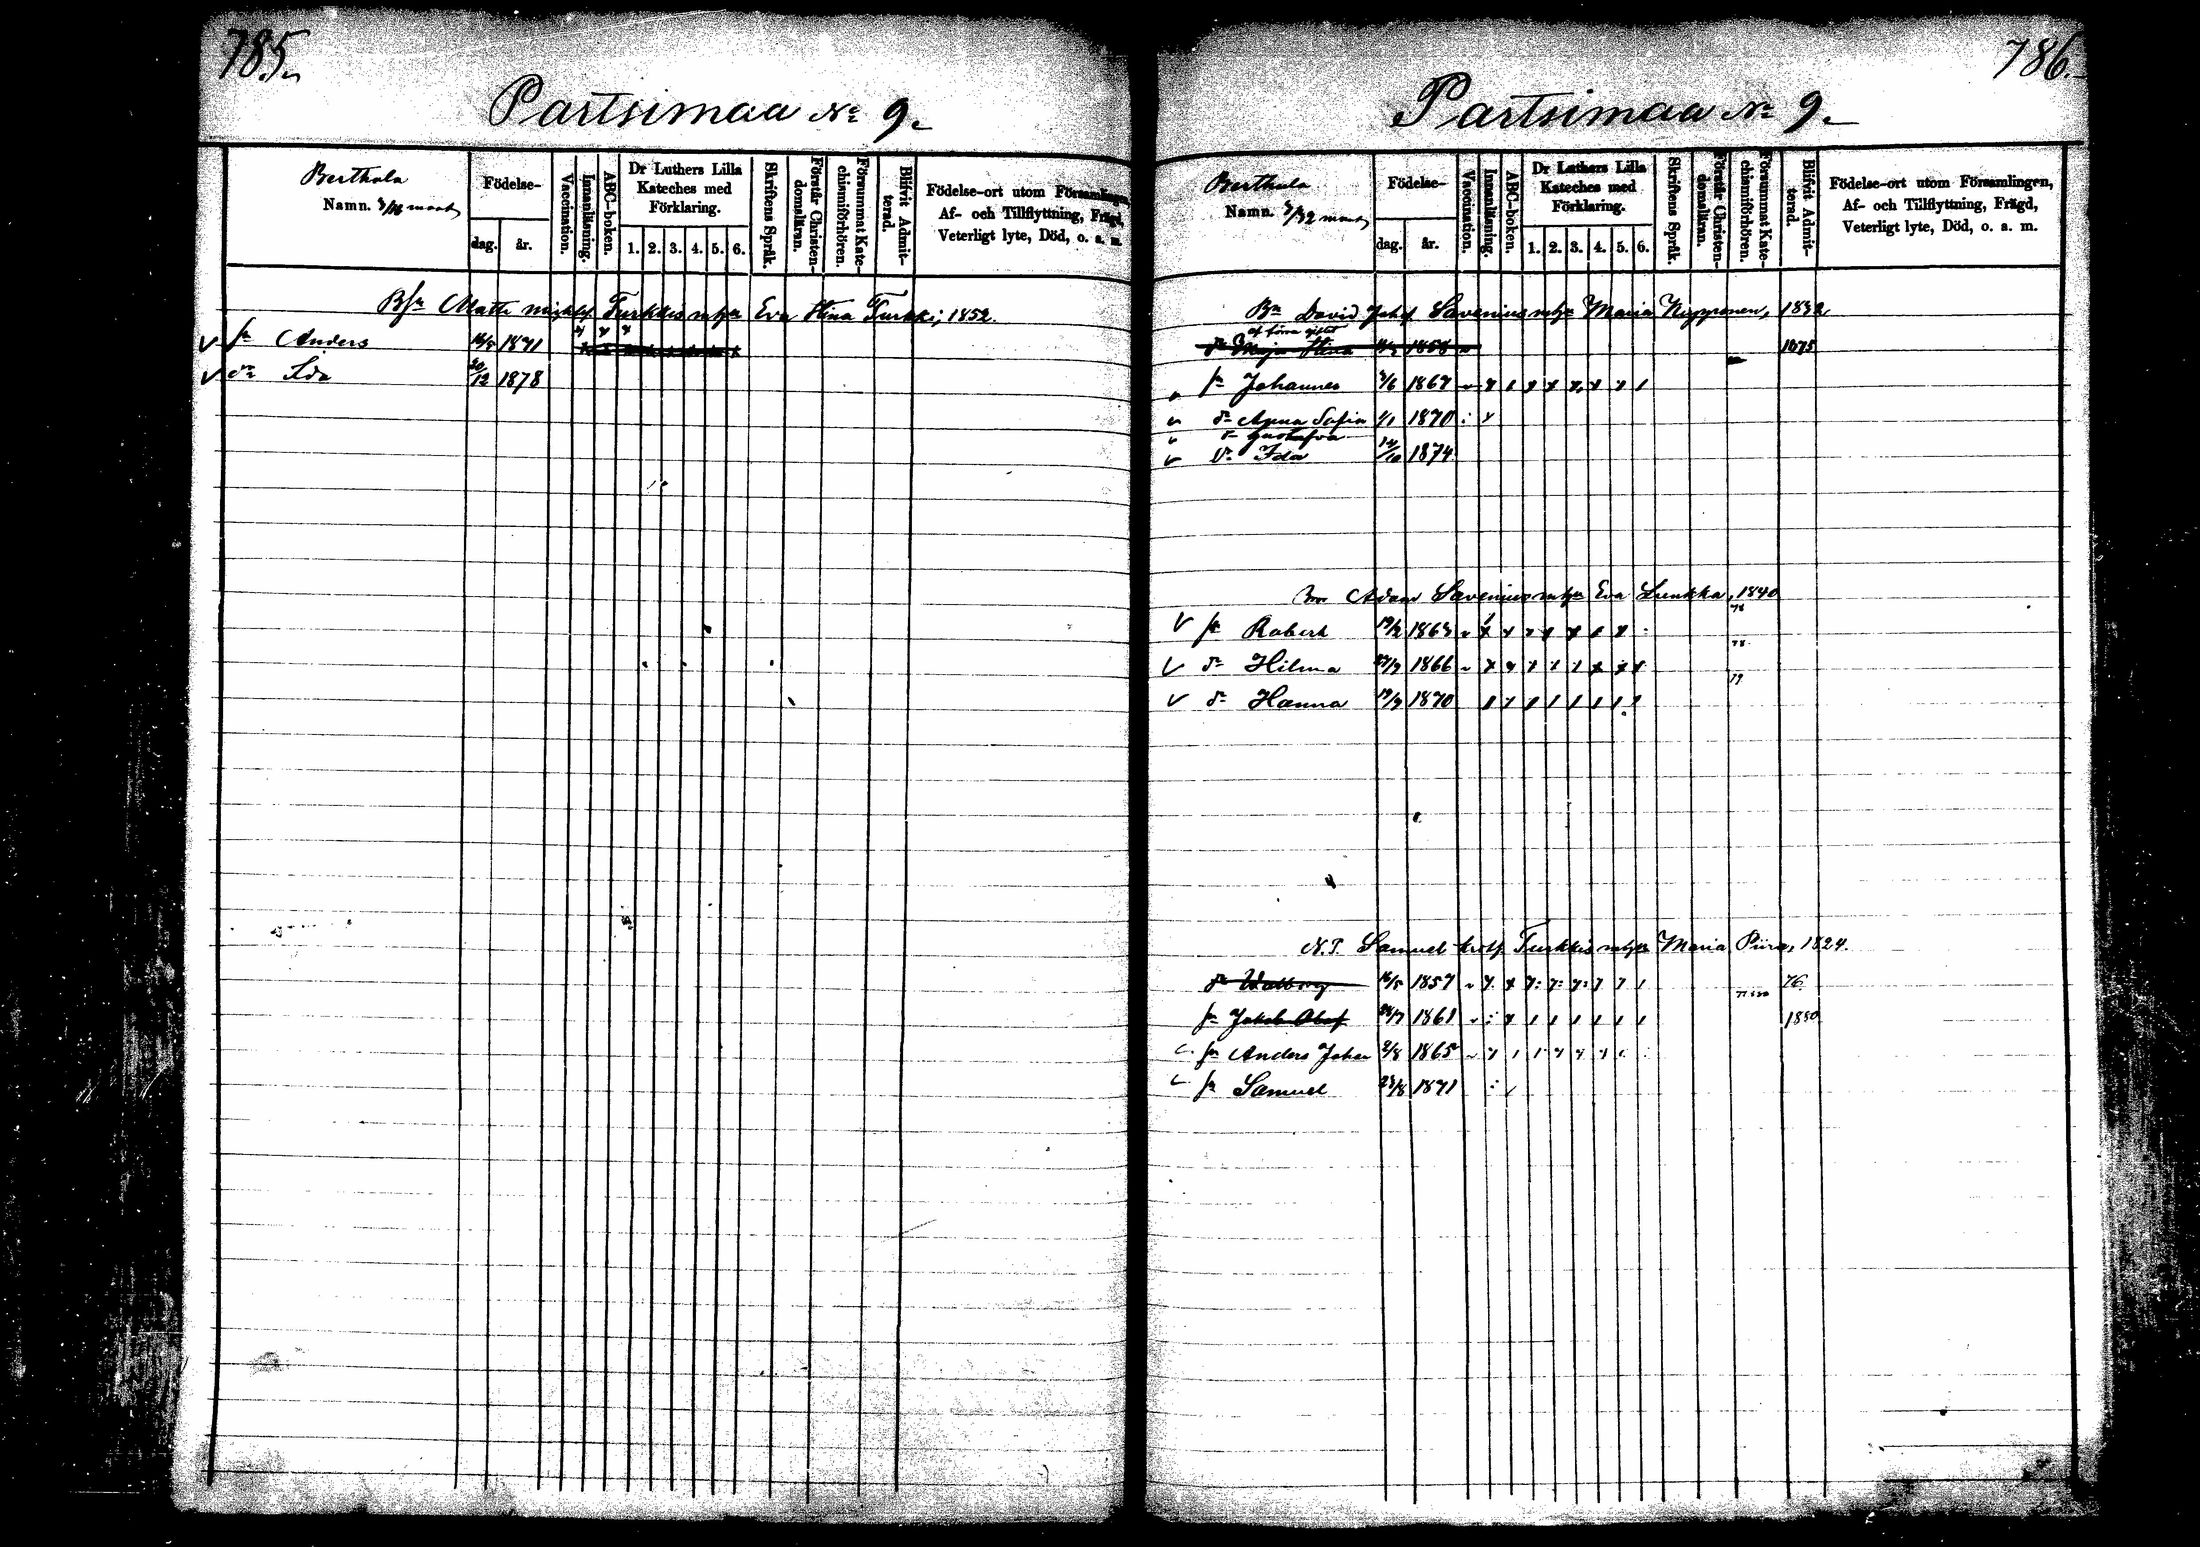 785.
Partsimaa No 9.
Berthola
Namn.
Födelse-
dag. år.
Vaccination.
Innanläsning.
ABC-boken.
Dr Luthers Lilla Kateches med Förklaring.
1. 2. 3. 4. 5. 6.
Skriftens Språk.
Förstår Christen-domsläran.
Försummat Kate-chismiförhören.
Blifvit Admit-terad.
Födelse-ort utom Församlingen,
Af- och Tillflyttning, Frägd,
Veterligt lyte, Död, o. a. m.
Matts Turkkis Eva Stina Turkki, 1852.
Anders 1871
Ida 20/12 1878
786.
Partsimaa No 9.
Berthola
Namn.
Födelse-
dag. år.
Vaccination.
Innanläsning.
ABC-boken.
Dr Luthers Lilla Kateches med Förklaring.
1. 2. 3. 4. 5. 6.
Skriftens Språk.
Förstår Christen-domsläran.
Försummat Kate-chismiförhören.
Blifvit Admit-terad.
Födelse-ort utom Församlingen,
Af- och Tillflyttning, Frägd,
Veterligt lyte, Död, o. a. m.
David Savenius Maria 1832
Maja Stina 1858 1875
Johannes 1867
Anna Sofia 1/1 1870
Gustafva
Ida 14/10 1874
Adam Savenius Eva Lunkka, 1840
Robert 1863
78
Hilma 1866
79
Hanna 19/9 1870
N.T. Samuel Turkkis Maria Piira, 1824.
Walborg 1857 76
Jakob Olof 1861 1880
Anders Johan 2/8 1865
Samuel 1871